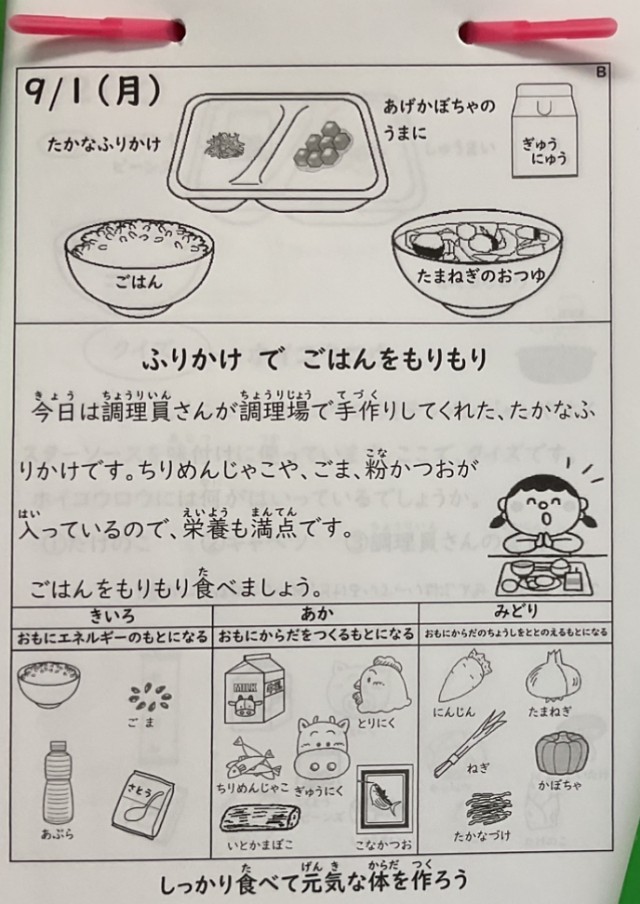 B
9/1(月)
たかなふりかけ
あげかぼちゃの
うまに
ぎゅう
にゅう
ごはん
たまねぎのおつゆ
ふりかけ で ごはんをもりもり
今日は調理員さんが調理場で手作りしてくれた、たかなふ
りかけです。ちりめんじゃこや、ごま、粉かつおが
入っているので、栄養も満点です。
ごはんをもりもり食べましょう。
きいろ
おもにエネルギーのもとになる
ごま
あぶら
さとう
あか
おもにからだをつくるもとになる
MILK
とりにく
ちりめんじゃこ
ぎゅうにく
いとかまぼこ
こなかつお
みどり
おもにからだのちょうしをととのえるもとになる
にんじん
たまねぎ
ねぎ
かぼちゃ
たかなづけ
しっかり食べて元気な体を作ろう